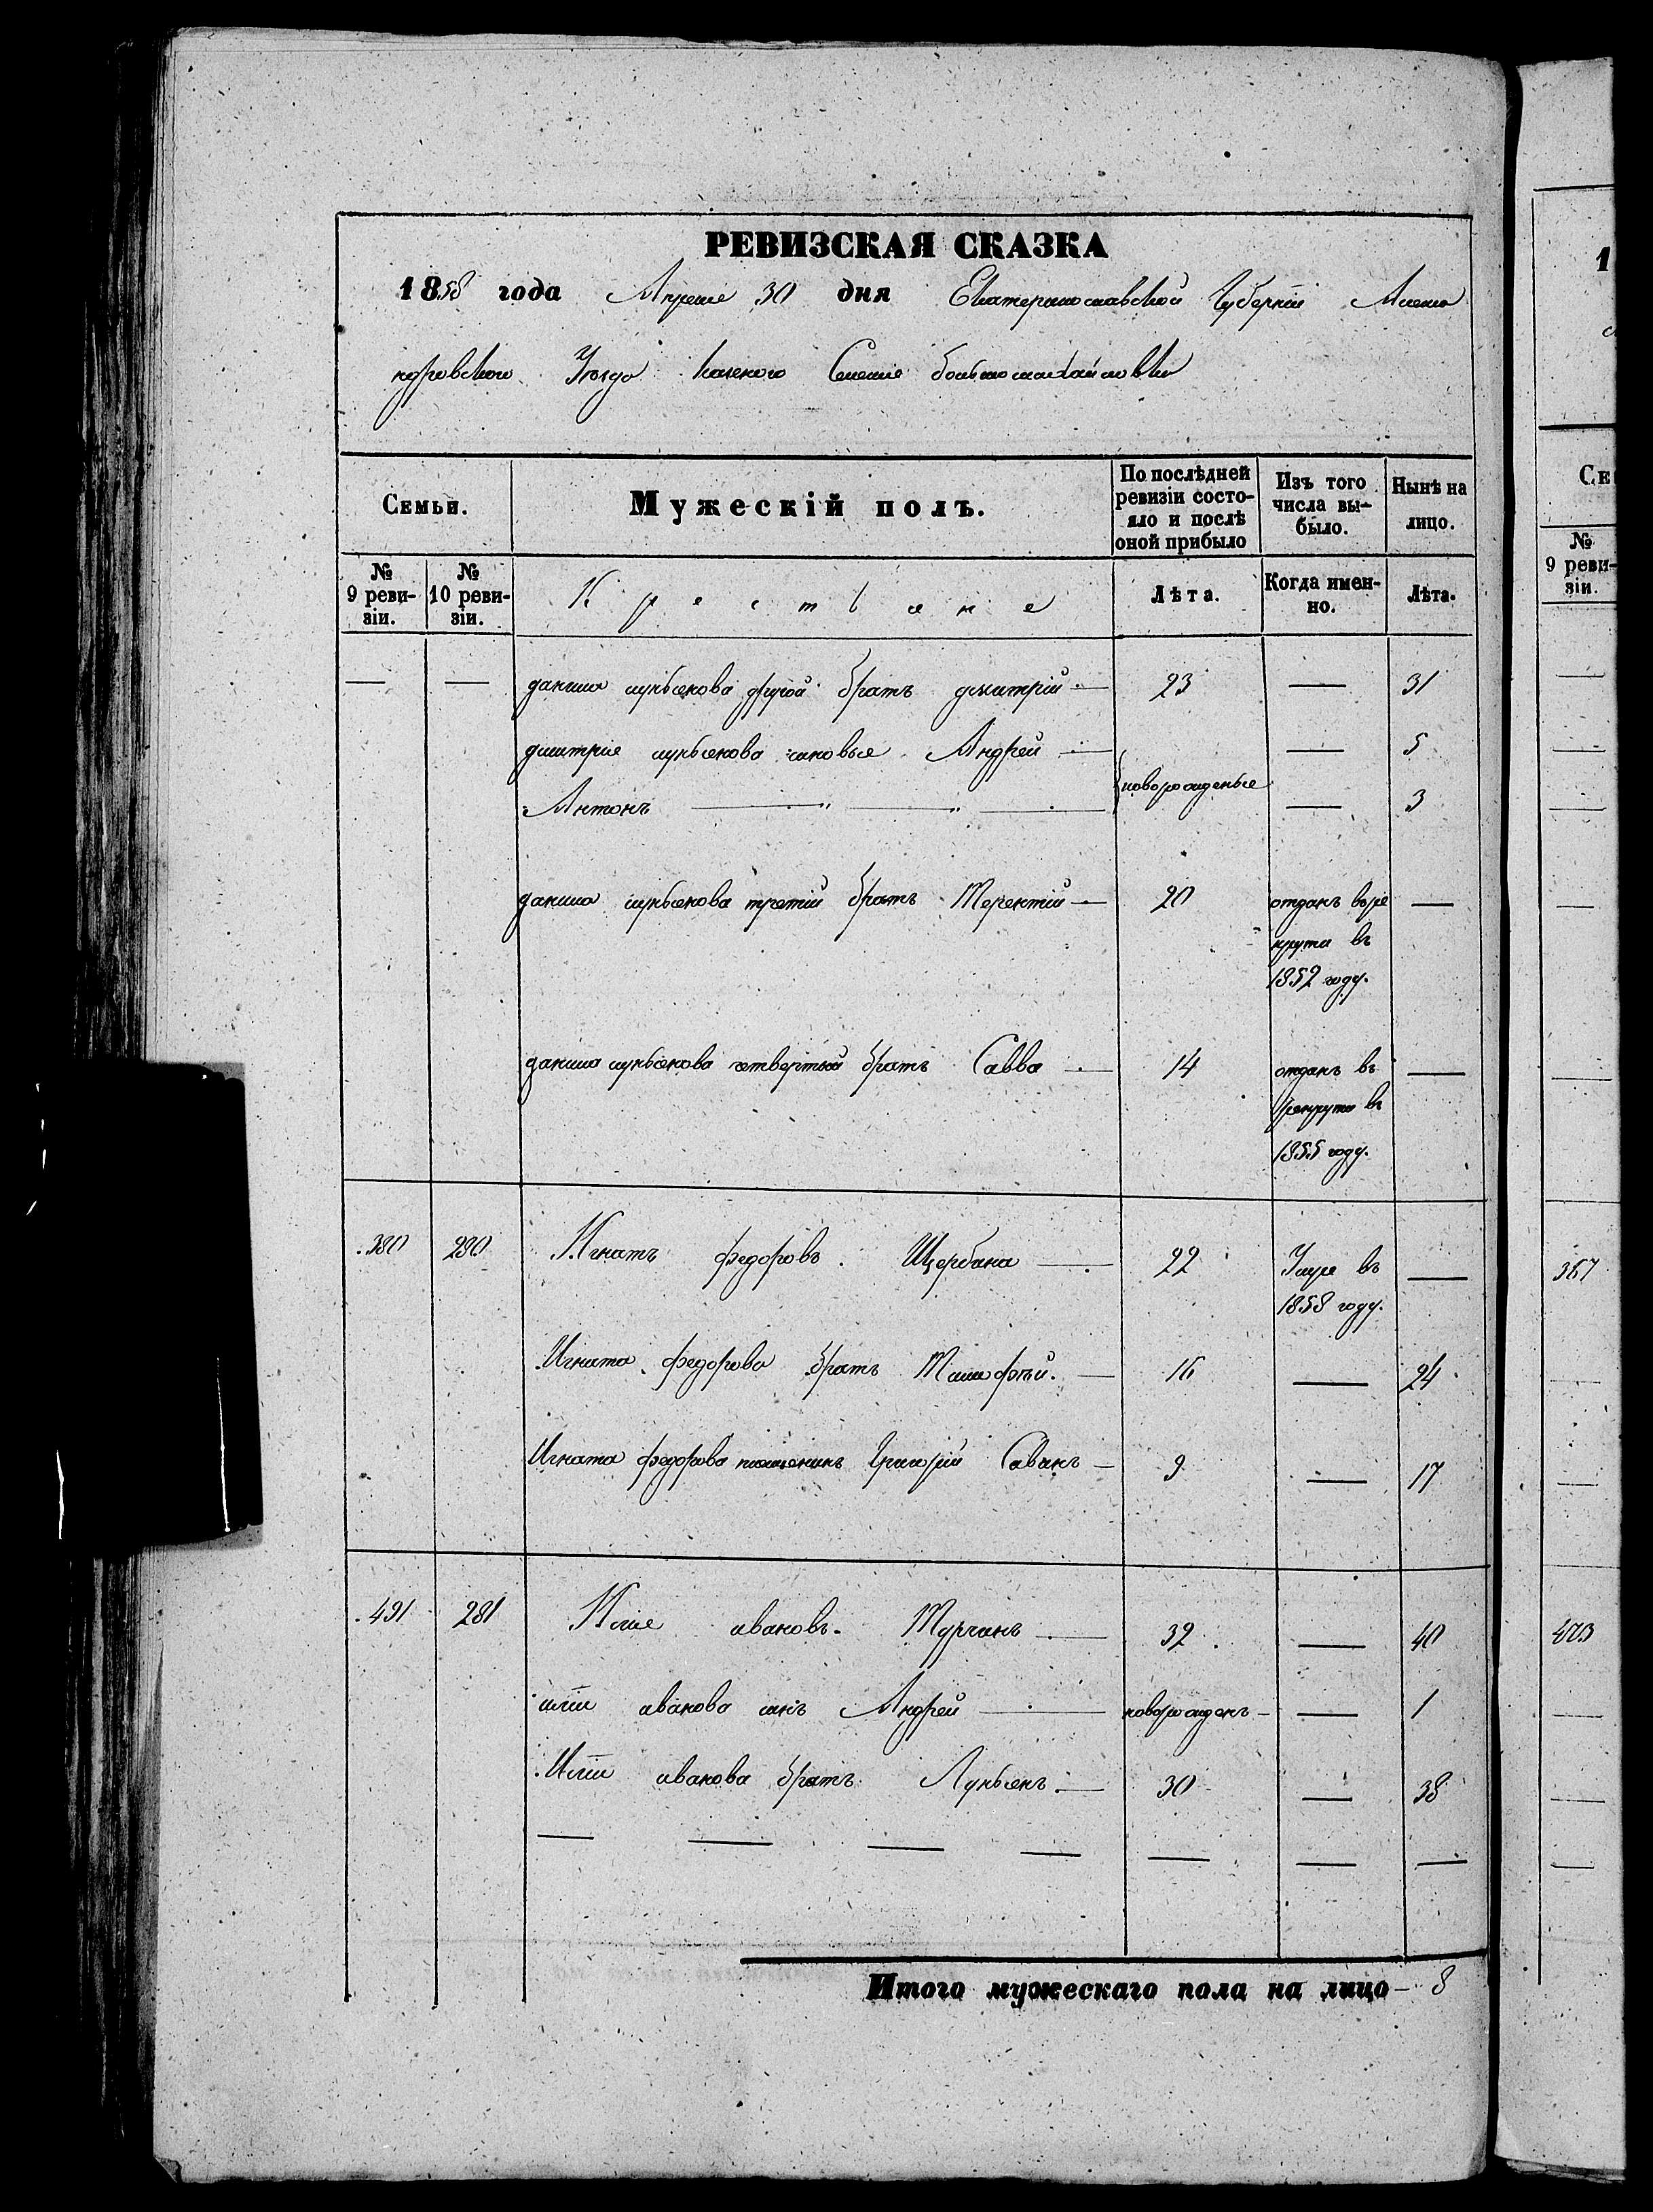 РЕВИЗСКАЯ СКАЗКА
1858 года Апреля 30 дня Екатеринославской Губернии Алекса
ндровского Уезда Селения большомихайловки
Семьи. Мужескій полъ. По послѣдней ревизіи состо- яло и послѣ оной прибыло Изъ того числа вы- было. Нынѣ на лицо.
№ 9 реви- зіи. № 10 реви- зіи. Крестьяне Лѣта. Когда имен- но. Лѣта.
— — данила лукьянова другой братъ дмитрій — 23 — 31
дмитрія лукьянова сыновья Андрей — новорожденые — 5
Антонъ — „ — „ — — 3
данила лукьянова третій братъ Терентій — 20 отданъ въ ре —
крута въ
1852 году.
данила лукьянова четвертый братъ Савва — 14 отданъ въ —
рекрута въ
1855 году.
380 280 Игнатъ федоровъ Щербина — 22 Умре въ —
1858 году.
Игната федорова братъ Тимофѣй. — 16 — 24
Игната федорова племенникъ Григорій Саванъ — 9 — 17
491 281 Илия ивановъ. Турчинъ — 32 — 40
иліи иванова синъ Андрей — новорожденъ — — 1
Иліи иванова братъ Лукьянъ — 30 — 38
— — — — — — —
Итого мужескаго пола на лицо — 8
1
Се
№
9 реви-
зіи.
367
473